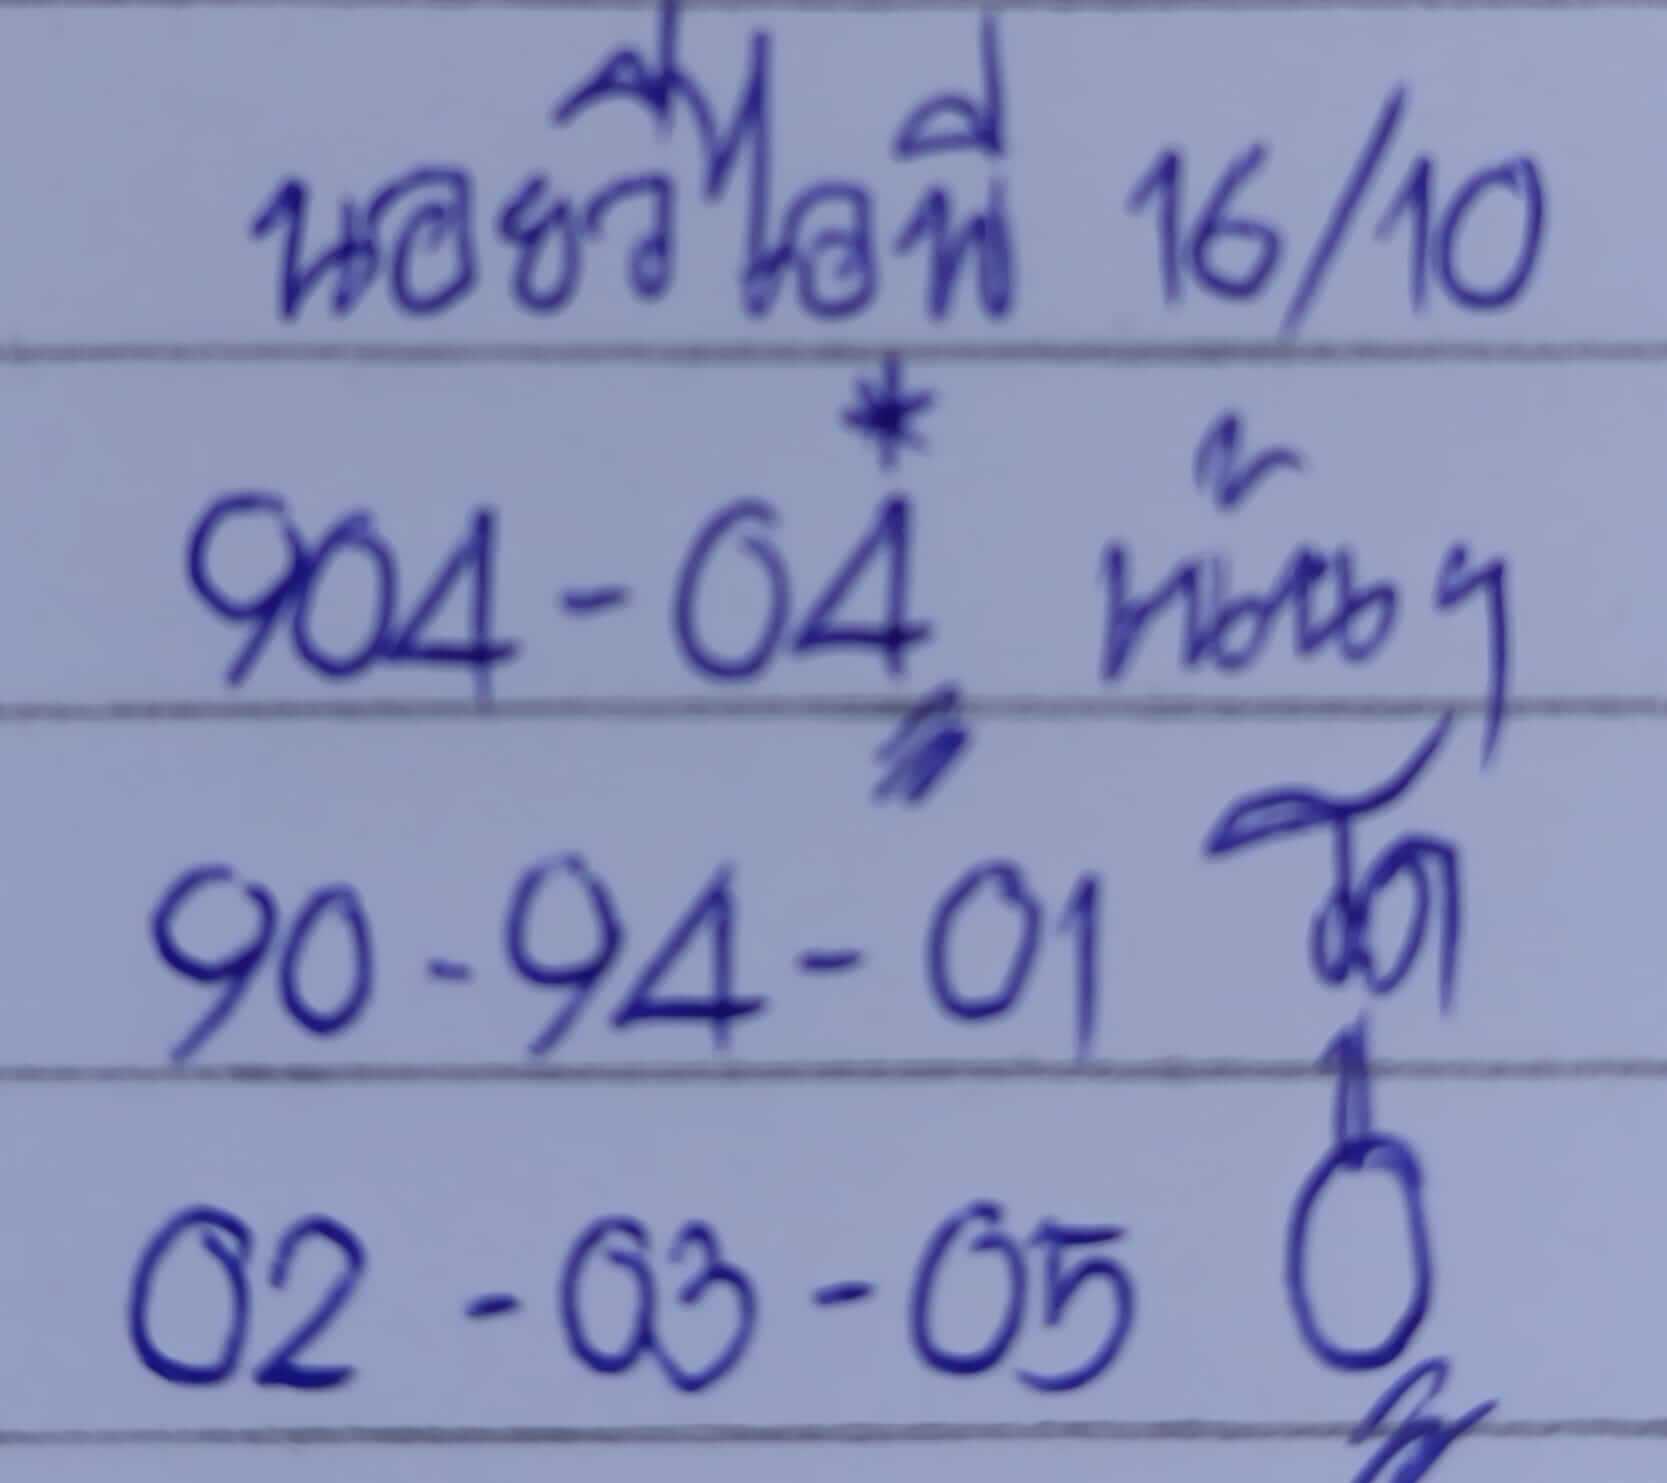 นอยวีไอพี 16/10
904-04 เน้นๆ
90-94-01 รูด
02-03-05 0